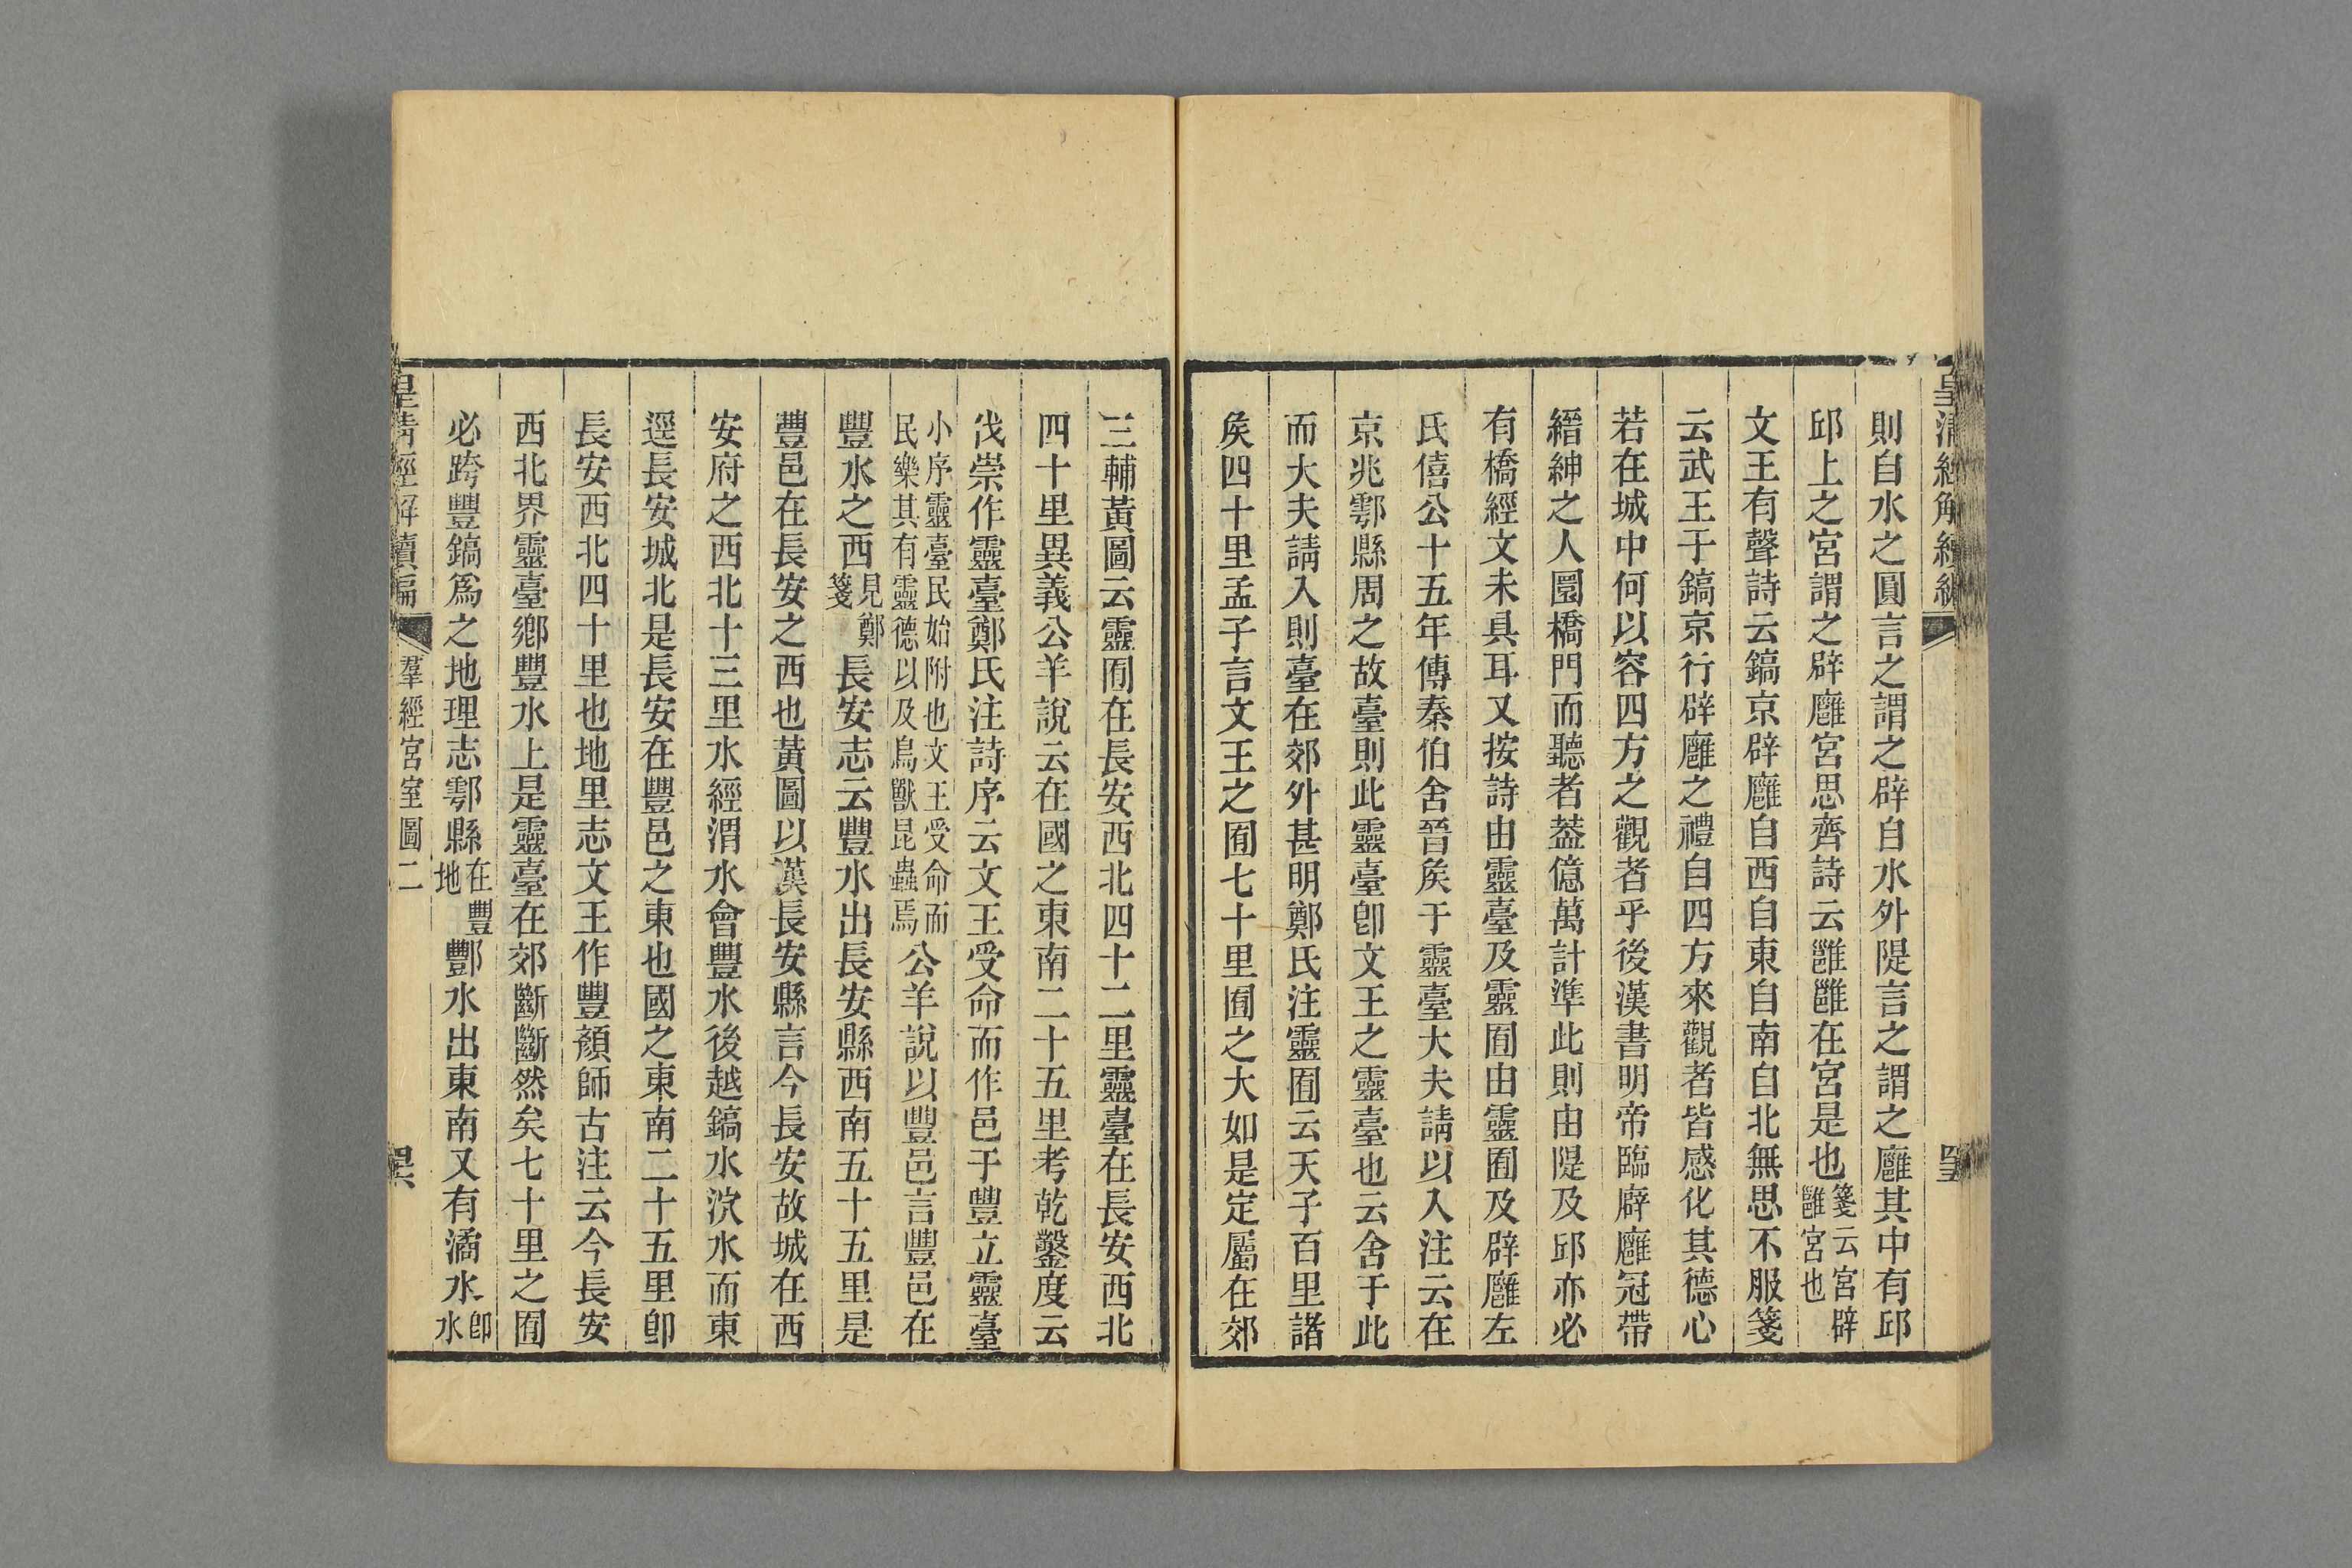 則自水之圓言之謂之辟自水外隄言之謂之廱其中有邱
邱上之宮謂之辟廱宮思齊詩云雝雝在宮是也箋云宮辟雝宮也
文王有聲詩云鎬京辟廱自西自東自南自北無思不服箋
云武王于鎬京行辟廱之禮自四方來觀者皆感化其德心
若在城中何以容四方之觀者乎後漢書明帝臨辟廱冠帶
縉紳之人圜橋門而聽者葢億萬計準此則由隄及邱亦必
有橋經文未具耳又按詩由靈臺及靈囿由靈囿及辟廱左
氏僖公十五年傳秦伯舍晉矦于靈臺大夫請以入注云在
京兆鄠縣周之故臺則此靈臺卽文王之靈臺也云舍于此
而大夫請入則臺在郊外甚明鄭氏注靈囿云天子百里諸
矦四十里孟子言文王之囿七十里囿之大如是定屬在郊
三輔黃圖云靈囿在長安西北四十二里靈臺在長安西北
四十里異義公羊說云在國之東南二十五里考乾鑿度云
伐崇作靈臺鄭氏注詩序云文王受命而作邑于豐立靈臺
小序靈臺民始附也文王受命而民樂其有靈德以及鳥獸昆蟲焉公羊說以豐邑言豐邑在
豐水之西見鄭箋長安志云豐水出長安縣西南五十五里是
豐邑在長安之西也黃圖以漢長安縣言今長安故城在西
安府之西北十三里水經渭水會豐水後越鎬水泬水而東
逕長安城北是長安在豐邑之東也國之東南二十五里卽
長安西北四十里也地里志文王作豐顏師古注云今長安
西北界靈臺鄉豐水上是靈臺在郊斷斷然矣七十里之囿
必跨豐鎬爲之地理志鄠縣在豐地酆水出東南又有潏水卽水
皇清經解續編
羣經宮室圖二